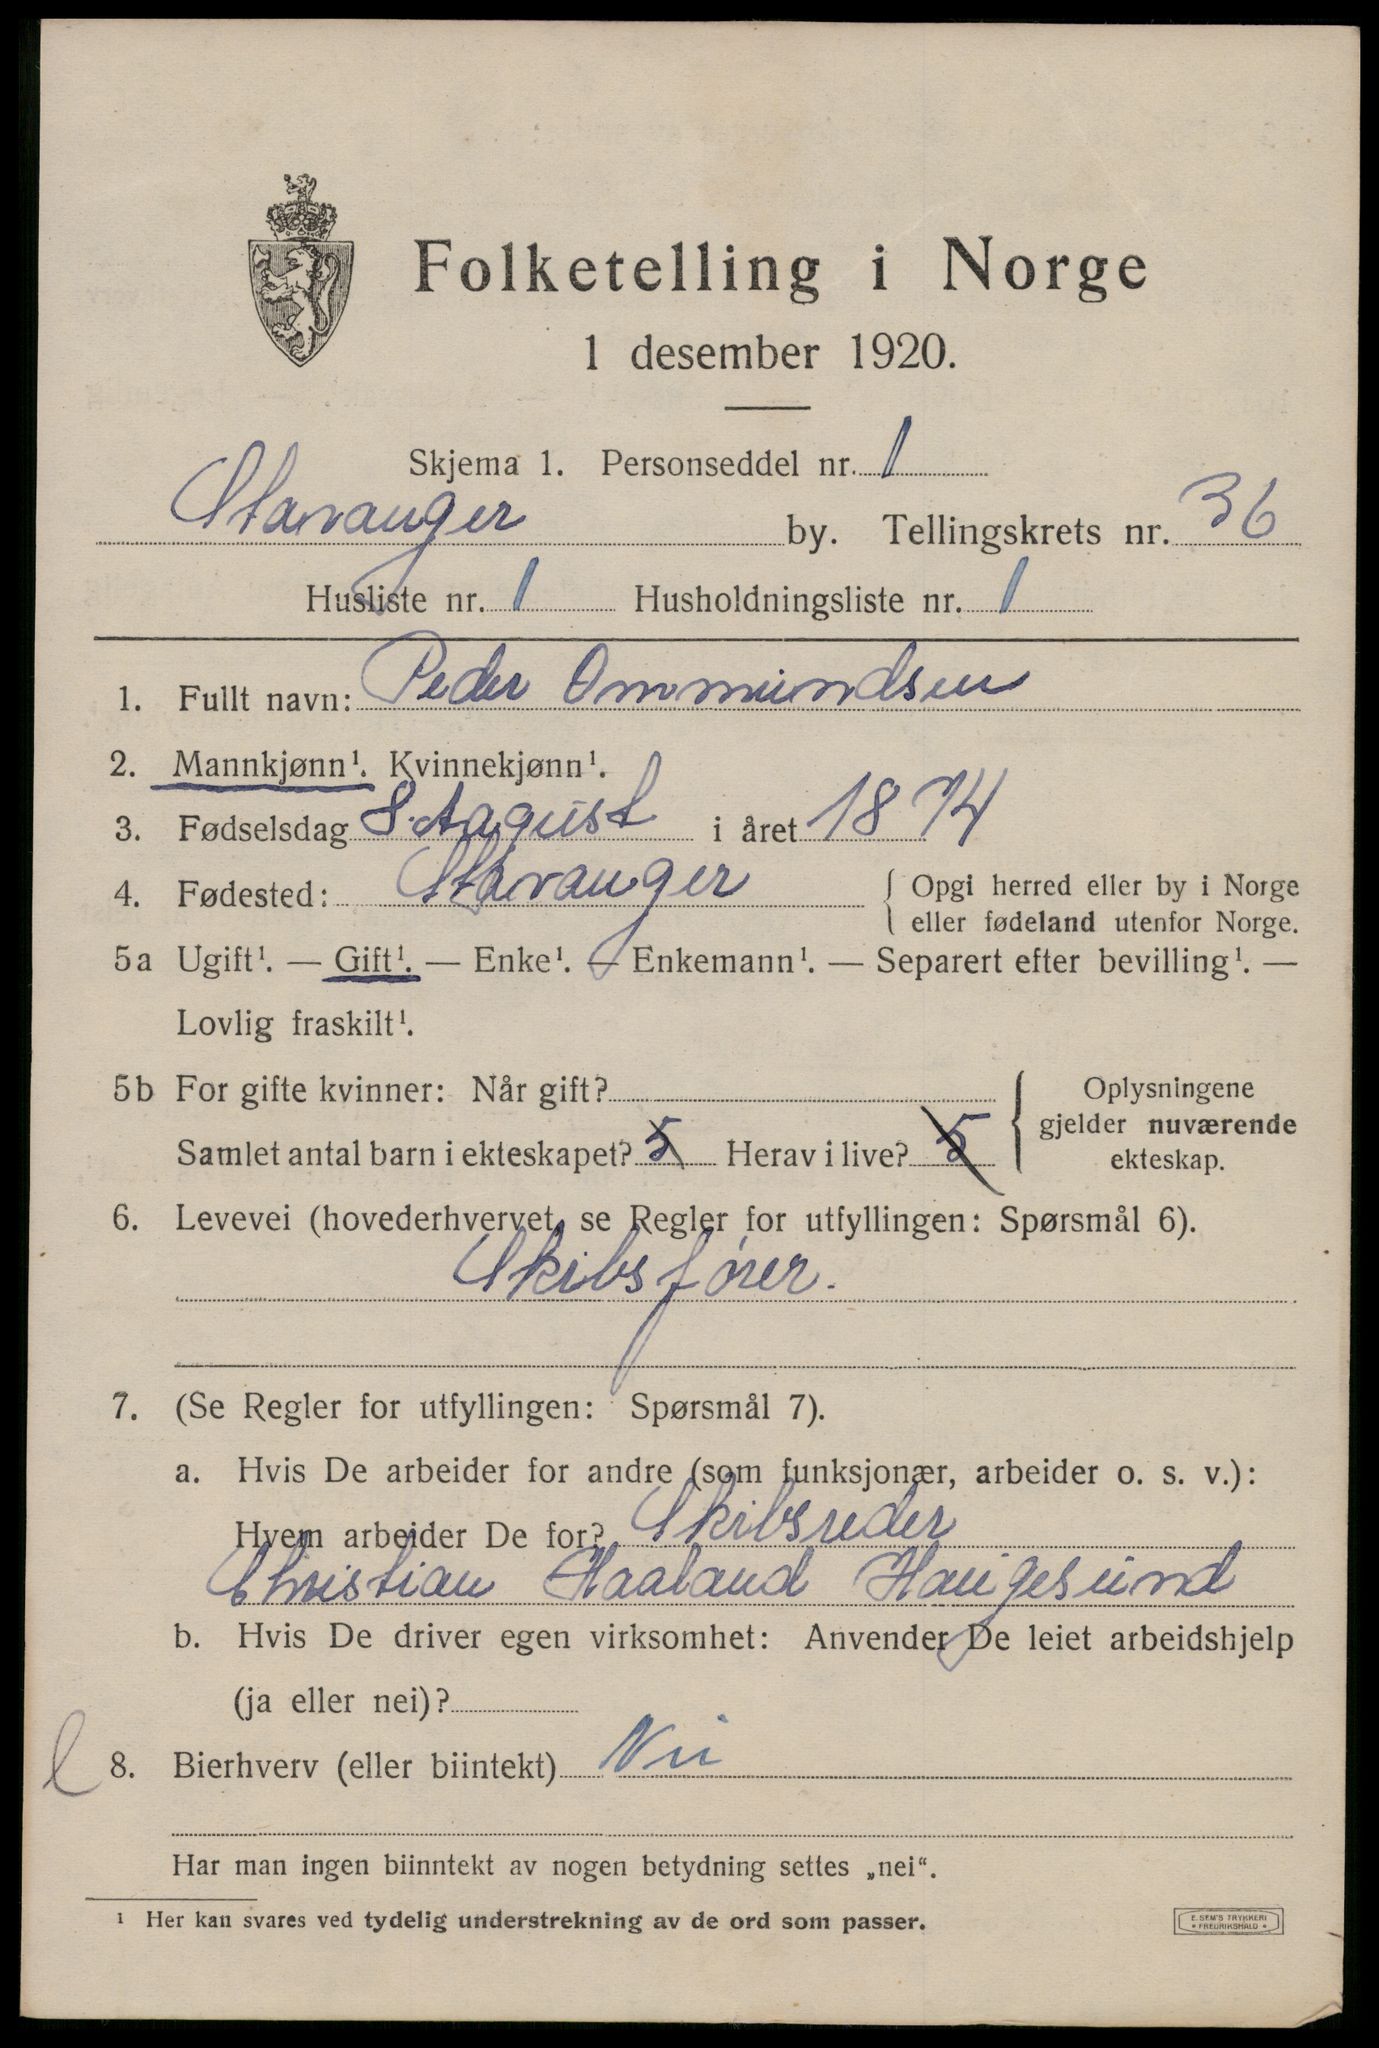 Folketelling i Norge
1 desember 1920.
Skjema 1. Personseddel nr. 1
Stavanger by. Tellingskrets nr. 36
Husliste nr. 1 Husholdningsliste nr. 1
1. Fullt navn: Peder Ommundsen
2. Mannkjønn¹. Kvinnekjønn¹.
3. Fødselsdag 8. August i året 1874
4. Fødested: Stavanger { Opgi herred eller by i Norge
eller fødeland utenfor Norge.
5a Ugift¹. — Gift¹. — Enke¹. — Enkemann¹. — Separert efter bevilling¹. —
Lovlig fraskilt¹.
5b For gifte kvinner: Når gift? { Oplysningene
gjelder nuværende
Samlet antal barn i ekteskapet? 5 Herav i live? 5
ekteskap.
6. Levevei (hovederhvervet, se Regler for utfyllingen: Spørsmål 6).
Skibsfører.
7. (Se Regler for utfyllingen: Spørsmål 7).
a. Hvis De arbeider for andre (som funksjonær, arbeider o. s. v.):
Hvem arbeider De for? Skibsreder
Christian Haaland Haugesund
b. Hvis De driver egen virksomhet: Anvender De leiet arbeidshjelp
(ja eller nei)?
l 8. Bierhverv (eller biintekt) Nei
Har man ingen biinntekt av nogen betydning settes „nei“.
¹ Her kan svares ved tydelig understrekning av de ord som passer.
E. SEM'S TRYKKERI
• FREDRIKSHALD •